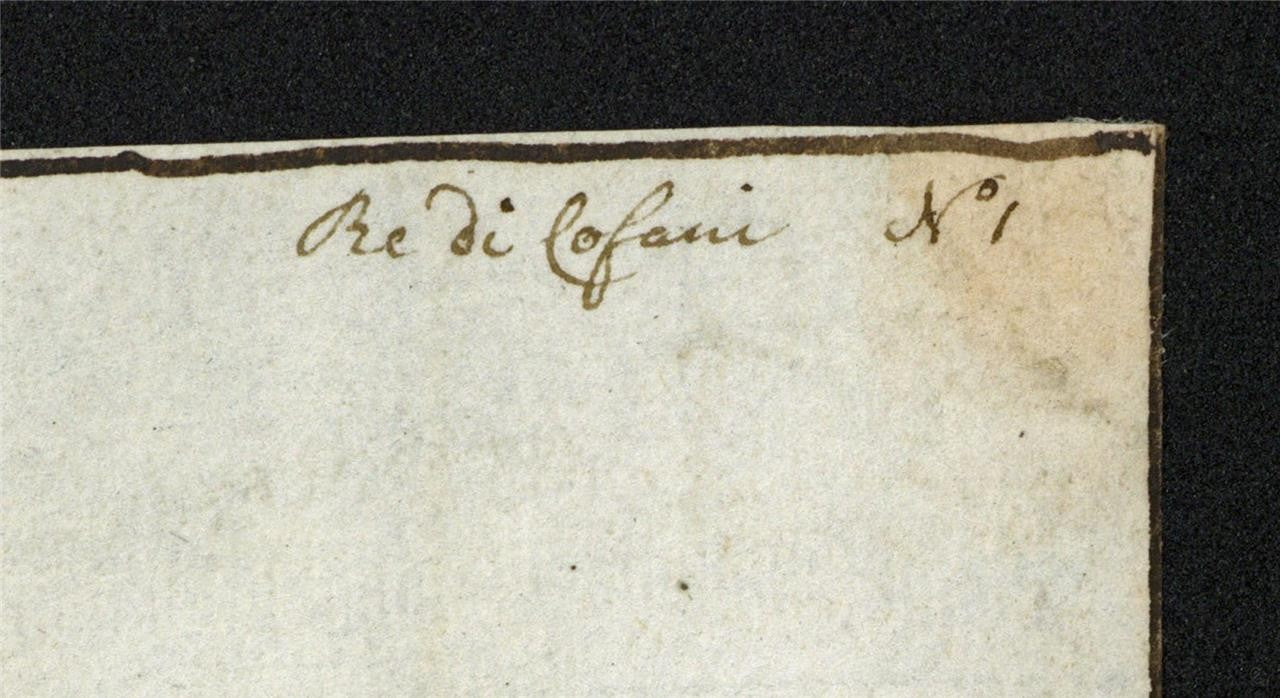 Re di Cofani N.º 1